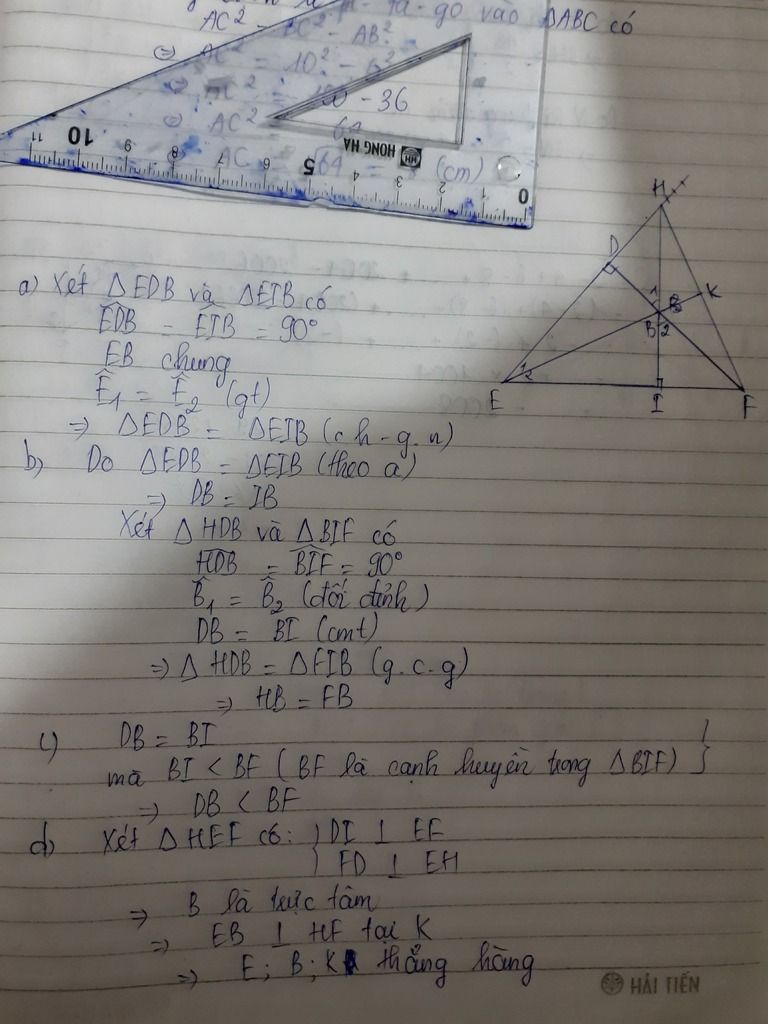 go vào ΔABC có
AC² = BC² - AB²
⇒ AC² = 10² - 6²
⇒ AC² = 100 - 36
⇒ AC² = 64
AC = √64 = (cm)
11 10 9 8 7 6 5 4 3 2 1 0
HONG HA
H
D
K
1
B
B 2
1 2
E
I
F
a) Xét ΔEDB và ΔEIB có
EDB = EIB = 90°
EB chung
Ê₁ = Ê₂ (gt)
⇒ ΔEDB = ΔEIB (c.h - g.n)
b) Do ΔEDB = ΔEIB (theo a)
⇒ DB = IB
Xét Δ HDB và ΔBIF có
HDB = BIF = 90°
B̂₁ = B̂₂ (đối đỉnh)
DB = BI (cmt)
⇒ Δ HDB = ΔFIB (g.c.g)
⇒ HB = FB
c) DB = BI
mà BI < BF ( BF là cạnh huyền trong ΔBIF) }
⇒ DB < BF
d) Xét ΔHEF có: } DI ⊥ EF
} FD ⊥ EH
⇒ B là trực tâm
⇒ EB ⊥ HF tại K
⇒ E; B; K thẳng hàng
HẢI TIẾN